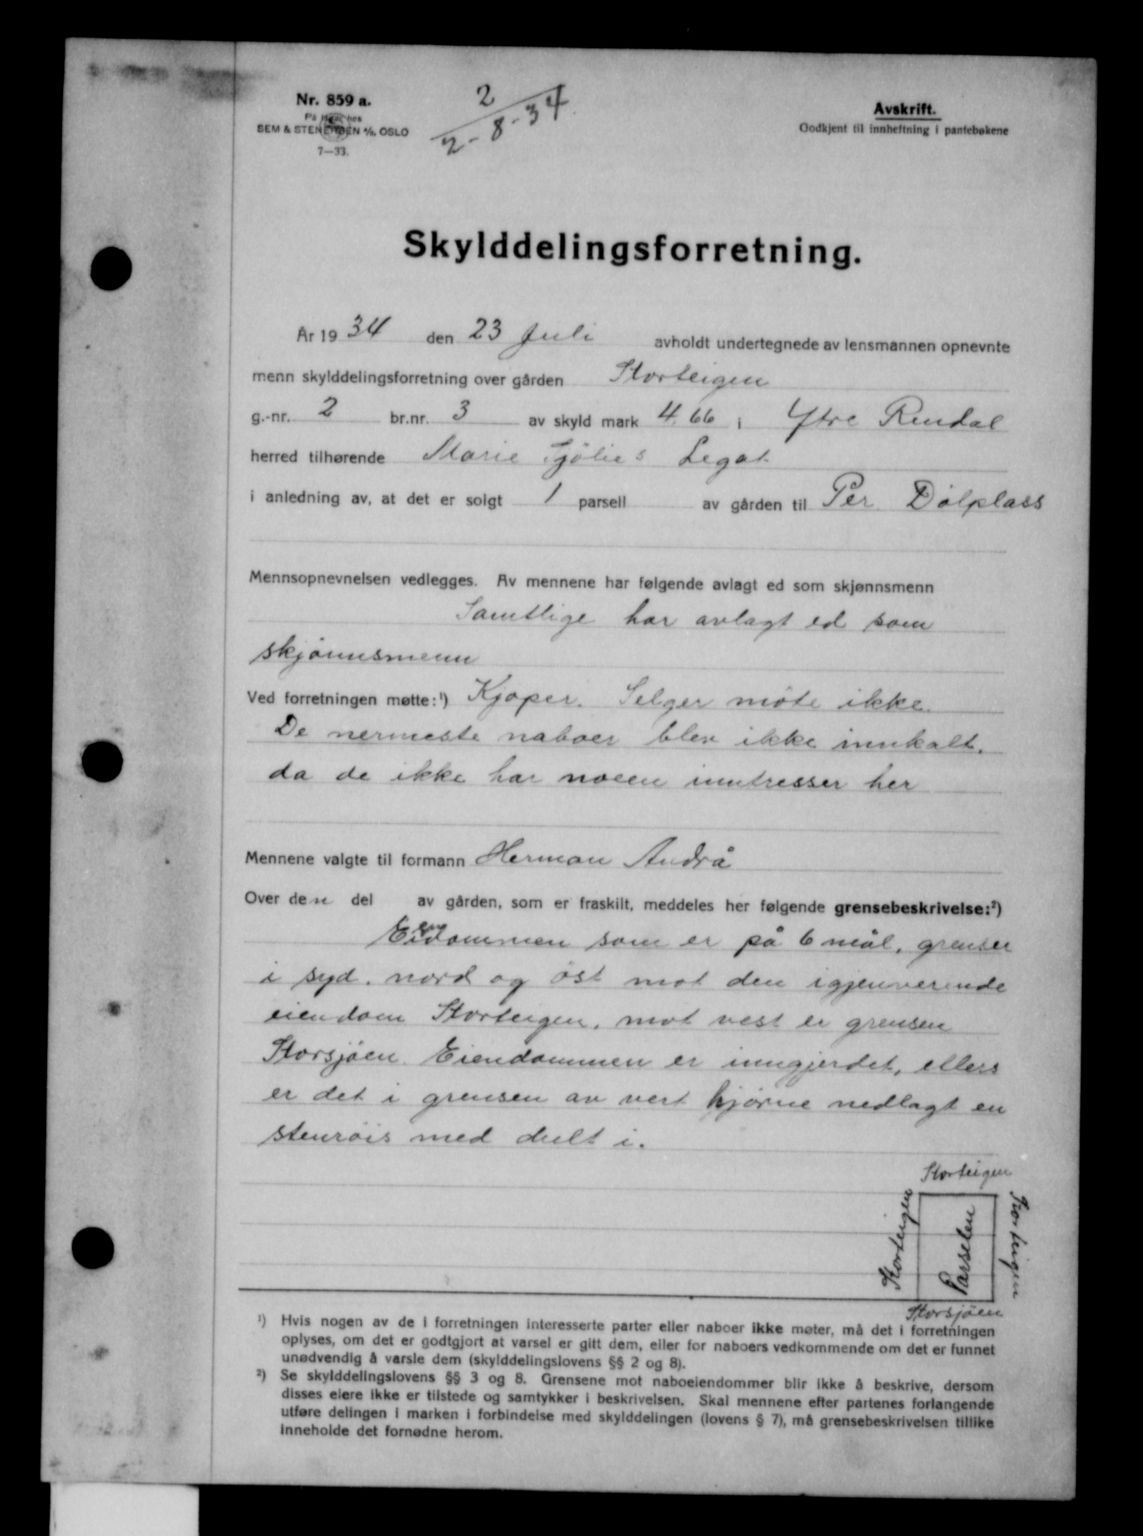 Nr. 859 a.
SEM & STENERSEN A/S, OSLO
7—33.
2
2-8-34
Avskrift.
Godkjent til innheftning i pantebøkene
Skylddelingsforretning.
År 1934 den 23 Juli avholdt undertegnede av lensmannen opnevnte
menn skylddelingsforretning over gården Storteigen
g.-nr. 2 br.nr. 3 av skyld mark 4.66 i Ytre Rendal
herred tilhørende Marie Fjølies Legat
i anledning av, at det er solgt 1 parsell av gården til Per Dølplass
Mennsopnevnelsen vedlegges. Av mennene har følgende avlagt ed som skjønnsmenn
Samtlige har avlagt ed som
skjønnsmenn
Ved forretningen møtte:¹) Kjøper. Selger møte ikke.
De nermeste naboer blev ikke innkalt.
da de ikke har noeen inntresser her
Mennene valgte til formann Herman Andrå
Over den del av gården, som er fraskilt, meddeles her følgende grensebeskrivelse:²)
Eiendommen som er på 6 mål, grenser
i syd. nord og øst mot den igjenverende
eiendom Storteigen, mot vest er grensen
Storsjøen. Eiendommen er inngjerdet, ellers
er det i grensen av vert hjørne nedlagt en
stenrøis med dult i.
Storteigen
Storteigen
Parselen
Storteigen
Storsjøen
¹) Hvis nogen av de i forretningen interesserte parter eller naboer ikke møter, må det i forretningen
oplyses, om det er godtgjort at varsel er gitt dem, eller for naboers vedkommende om det er funnet
unødvendig å varsle dem (skylddelingslovens §§ 2 og 8).
²) Se skylddelingslovens §§ 3 og 8. Grensene mot naboeiendommer blir ikke å beskrive, dersom
disses eiere ikke er tilstede og samtykker i beskrivelsen. Skal mennene efter partenes forlangende
utføre delingen i marken i forbindelse med skylddelingen (lovens § 7), må grensebeskrivelsen tillike
inneholde det fornødne herom.